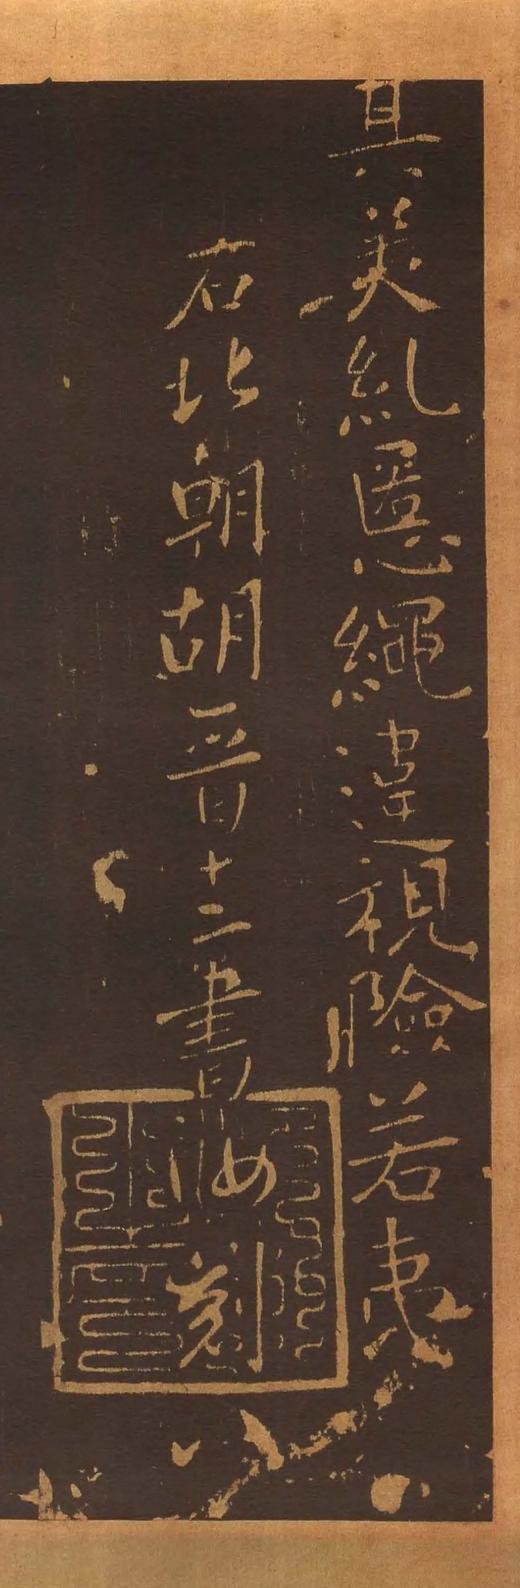 其美糺慝繩違視險若夷
右北朝胡晉十二書汝刻